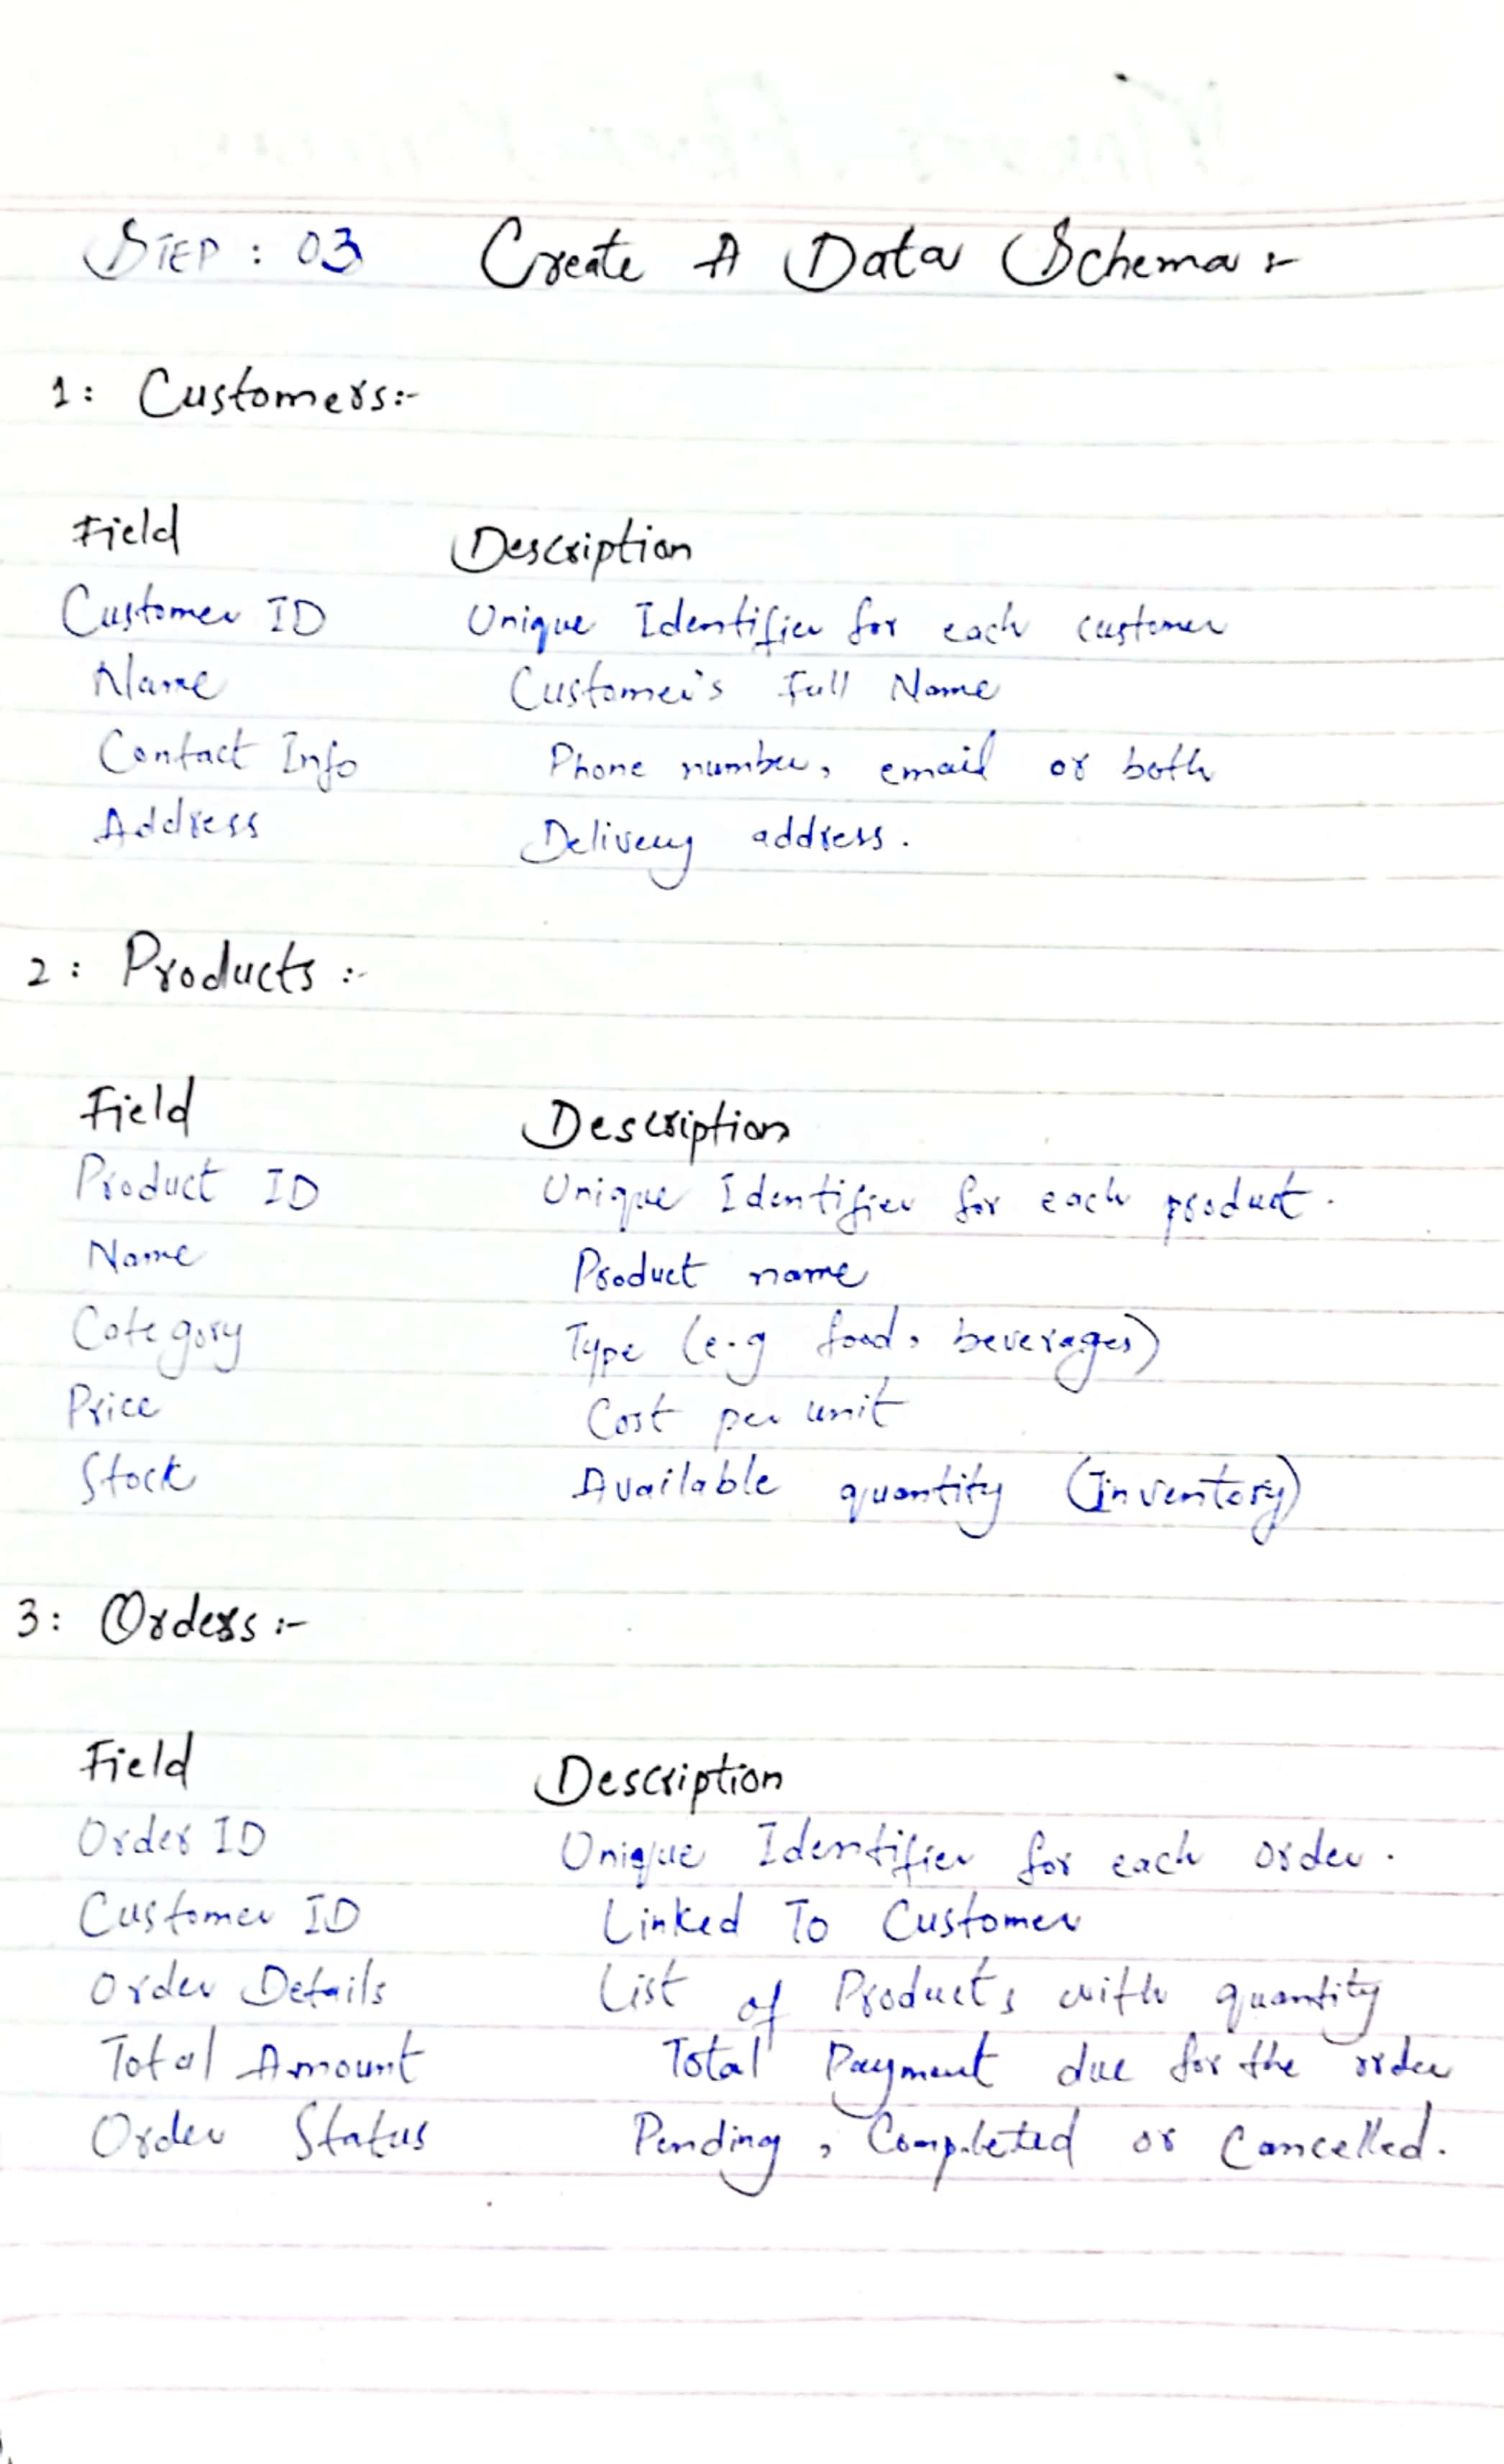 STEP : 03 Create A Data Schema :-
1: Customers:-
Field Description
Customer ID Unique Identifier for each customer
Name Customer's Full Name
Contact Info Phone number, email or both
Address Delivery address.
2: Products :-
Field Description
Product ID Unique Identifier for each product.
Name Product name
Category Type (e.g food, beverages)
Price Cost per unit
Stock Available quantity (Inventory)
3: Orders :-
Field Description
Order ID Unique Identifier for each order.
Customer ID Linked To Customer
Order Details List of Products with quantity
Total Amount Total Payment due for the order
Order Status Pending, Completed or Cancelled.